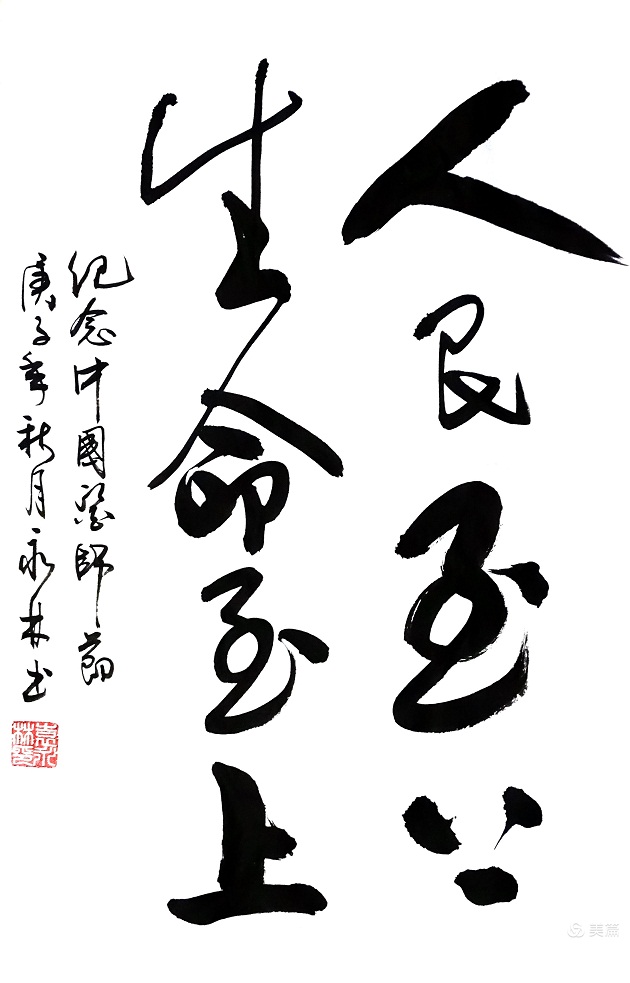 人民至上
生命至上
纪念中國醫師節
庚子年秋月永林书
美篇